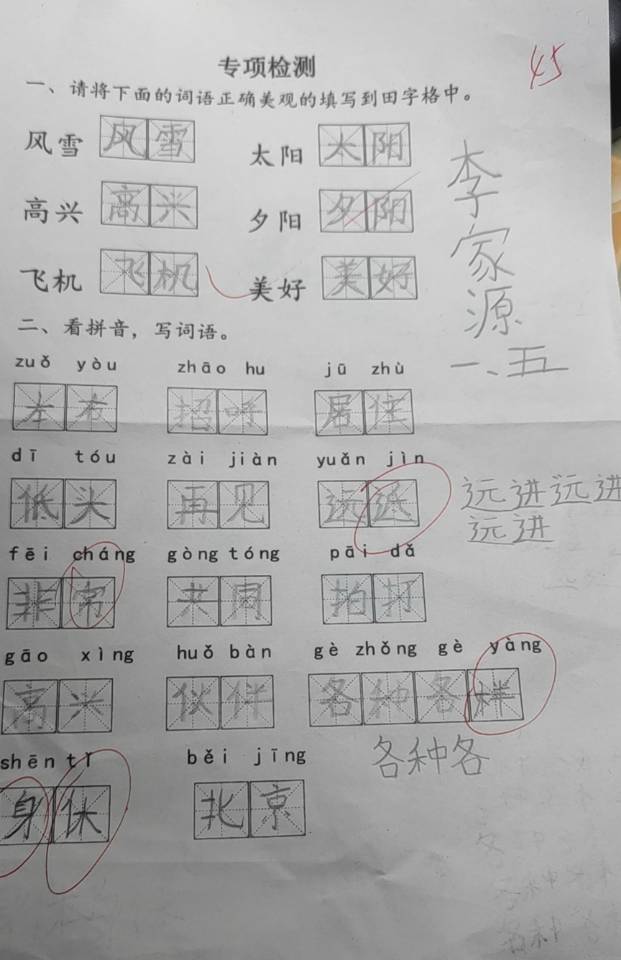 专项检测
45
一、请将下面的词语正确美观的填写到田字格中。
风雪 风雪 太阳 太阳
高兴 高兴 夕阳 夕阳
飞机 飞机 美好 美好
李家源
一、五
二、看拼音，写词语。
zuǒ yòu zhāo hu jū zhù
左右 招呼 居住
dī tóu zài jiàn yuǎn jìn
低头 再见 远近
远进远进
远进
fēi cháng gòng tóng pāi dǎ
非常 共同 拍打
gāo xìng huǒ bàn gè zhǒng gè yàng
高兴 伙伴 各种各样
各种各
shēn tǐ běi jīng
身休 北京